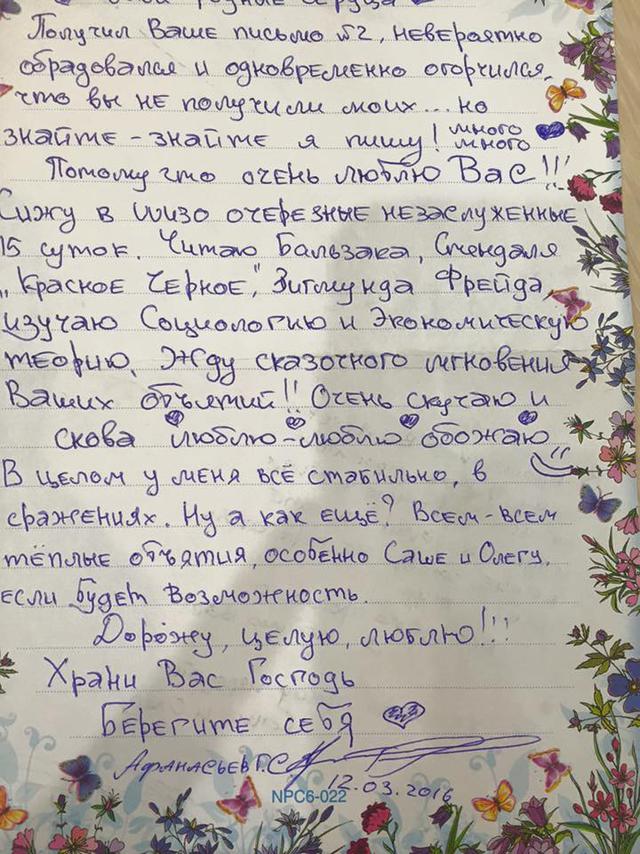 родные сердца
Получил Ваше письмо №2, невероятно
обрадовался и одновременно огорчился,
что вы не получили моих... но
знайте-знайте я пишу! много
много
Потому что очень люблю Вас!!!
Сижу в ШИЗО очерезные незаслуженные
15 суток. Читаю Бальзака, Стендаля
„Красное Черное", Зигмунда Фрейда,
изучаю Социологию и Экономическую
теорию. Жду сказочного мгновения
Ваших объятий!! Очень скучаю и
скова люблю-люблю обожаю
В целом у меня всё стабильно, в
сражениях. Ну а как ещё? Всем-всем
тёплые объятия, особенно Саше и Олегу,
если будет возможность.
Дорожу, целую, люблю!!!
Храни Вас Господь
Берегите себя
Афанасьев Г.С.
12.03.2016
NPC6-022